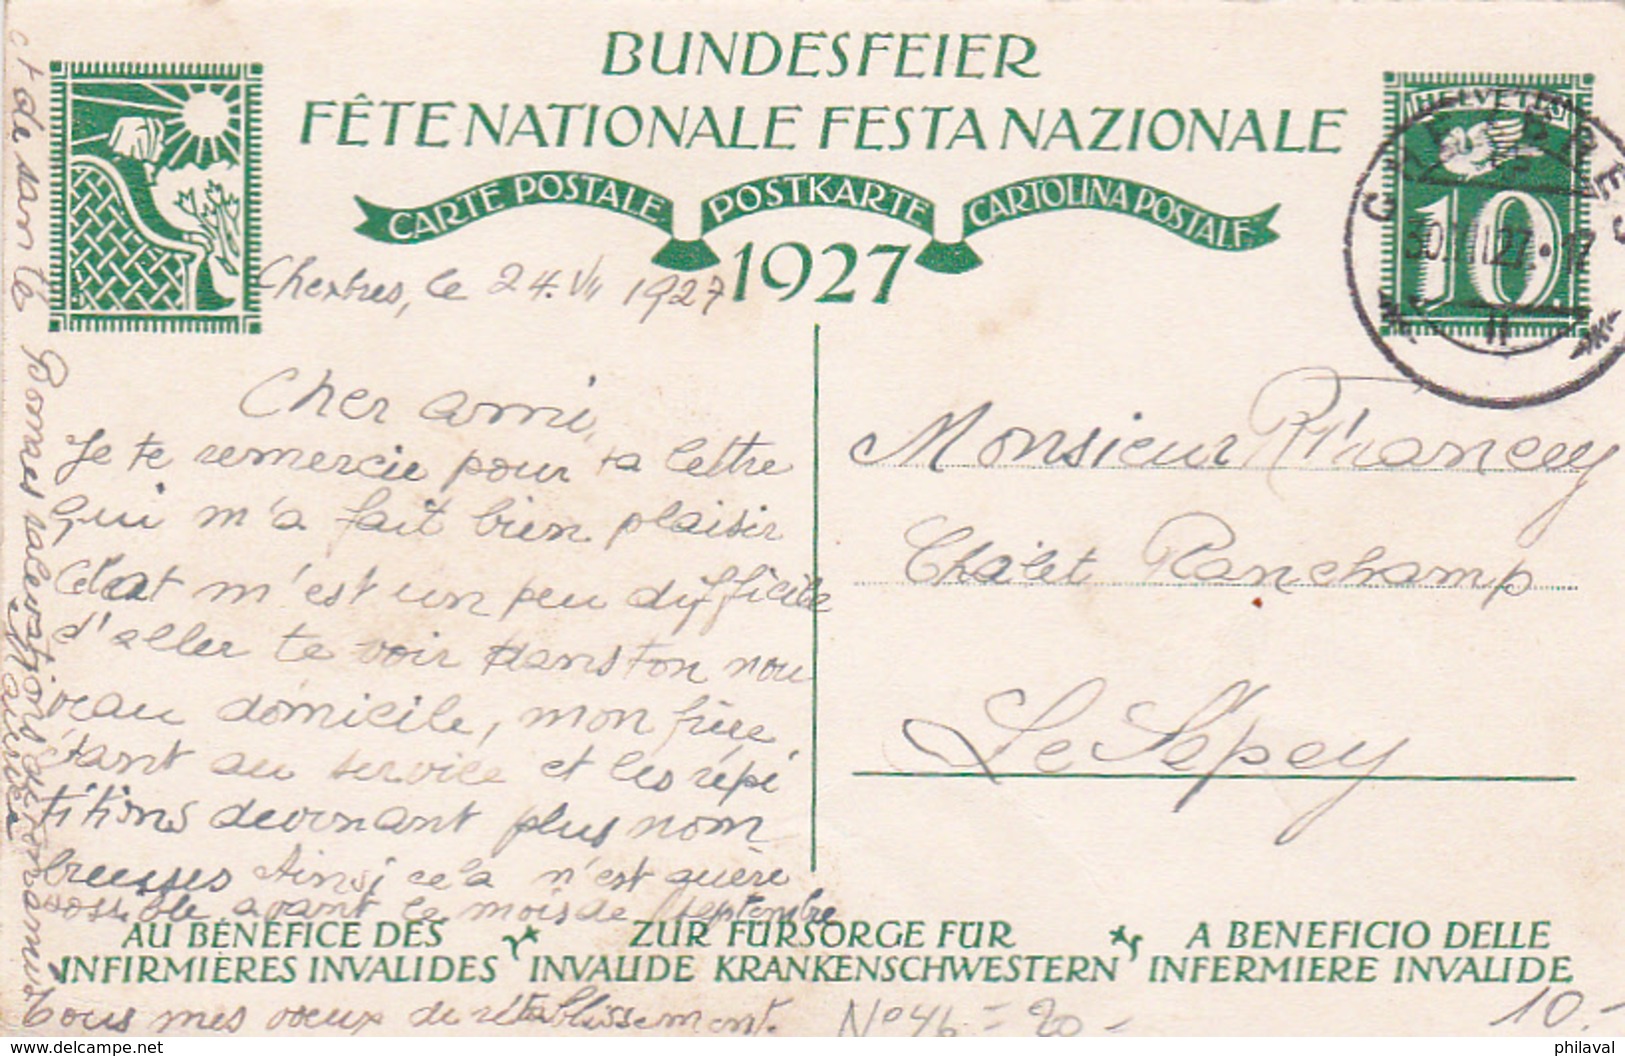 BUNDESFEIER
FÊTE NATIONALE FESTA NAZIONALE
CARTE POSTALE POSTKARTE CARTOLINA POSTALE
1927
HELVETIA
10
30.VII.27.•17
II
Chexbres, le 24.VII 1927
Cher ami,
Je te remercie pour ta lettre
qui m'a fait bien plaisir
m'est un peu difficile
d'aller te voir dans ton nou
veau domicile, mon frère
étant au service et les répé
titions devenant plus nom
breuses Ainsi cela n'est guère
possible avant le mois de septembre
Tous mes voeux de rétablissement.
et de santé
Bonnes salutations de ton ami
Maurice
Monsieur R. Francey
Chalet Ranchamp
Le Sépey
AU BÉNÉFICE DES
INFIRMIÈRES INVALIDES
ZUR FÜRSORGE FÜR
INVALIDE KRANKENSCHWESTERN
A BENEFICIO DELLE
INFERMIERE INVALIDE
No 46 = 20 -
10.-
delcampe.net
philaval